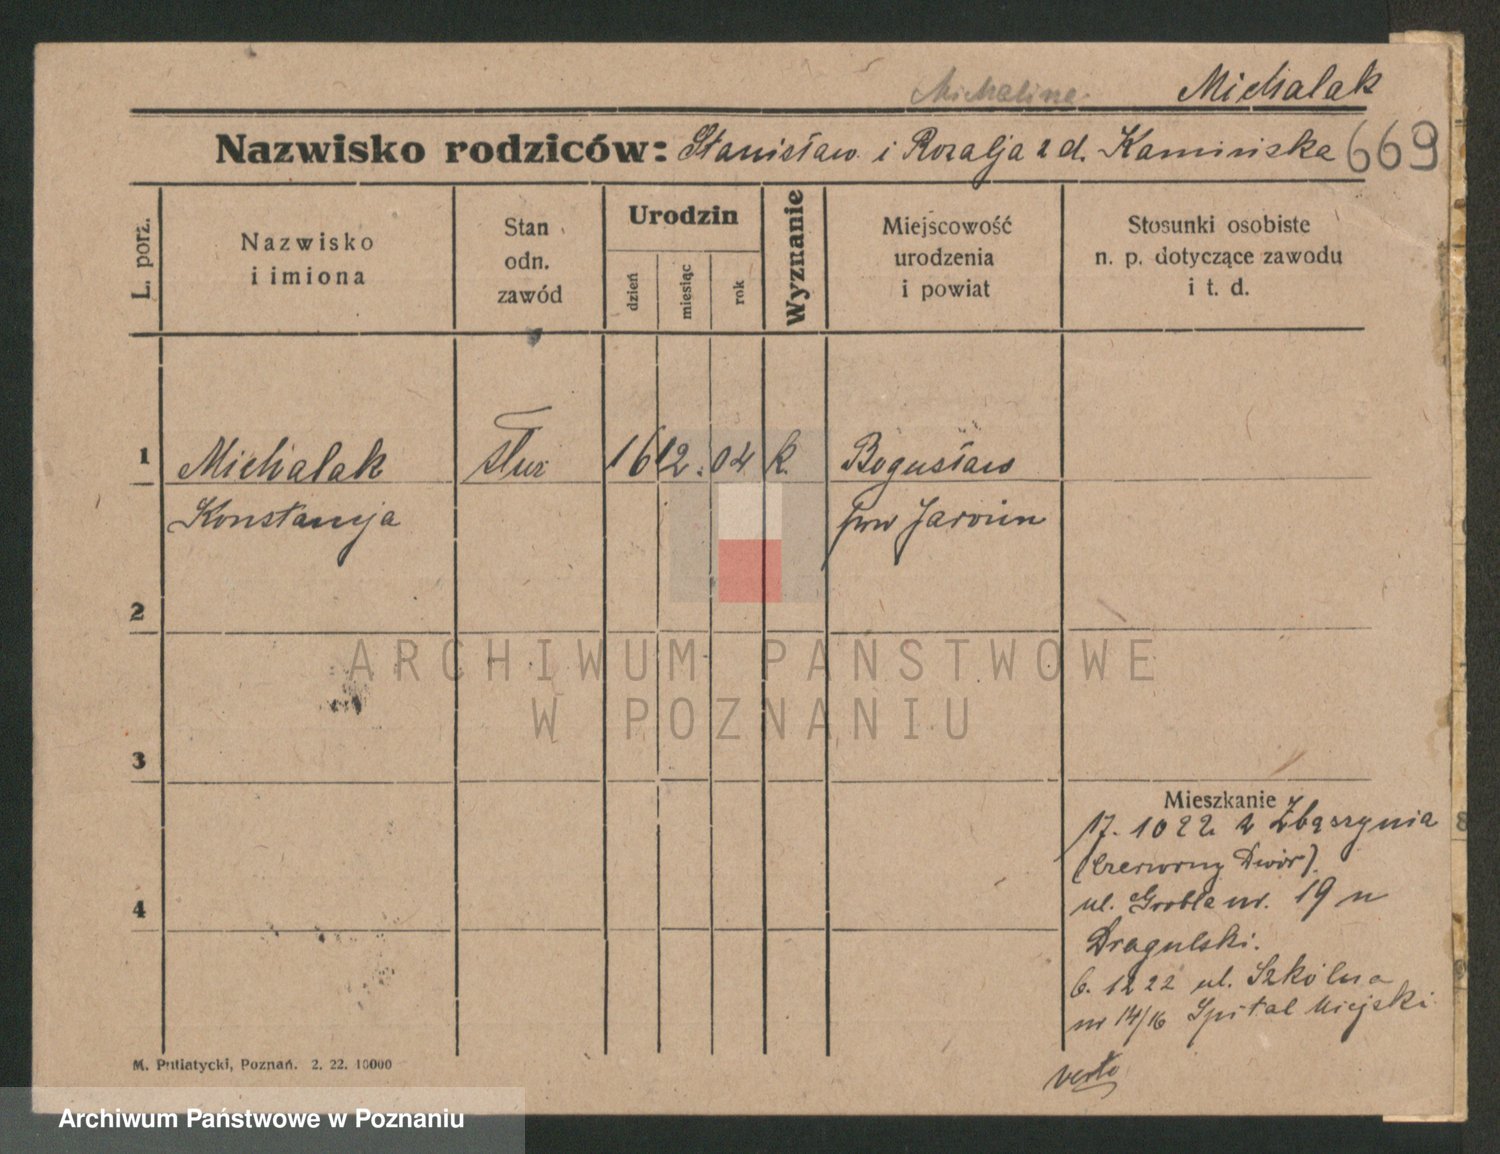 Michaline Michalak
Nazwisko rodziców: Stanisław i Rozalja z d. Kamińska 669
L. porz.
Nazwisko
i imiona
Stan
odn.
zawód
Urodzin
dzień
miesiąc
rok
Wyznanie
Miejscowość
urodzenia
i powiat
Stosunki osobiste
n. p. dotyczące zawodu
i t. d.
1 Michalak służ 16 12. 04 k. Bogusław
Konstancja pow Jarocin
2
3
4
Mieszkanie
17. 10 22 z Zbąszynia
(Czerwony Dwór).
ul. Grobla nr. 19 u
Dragulski.
6. 12 22 ul. Szkólna
nr 14/16 Szpital Miejski
verte
M. Putiatycki, Poznań. 2. 22. 10000
ARCHIWUM PAŃSTWOWE
W POZNANIU
Archiwum Państwowe w Poznaniu